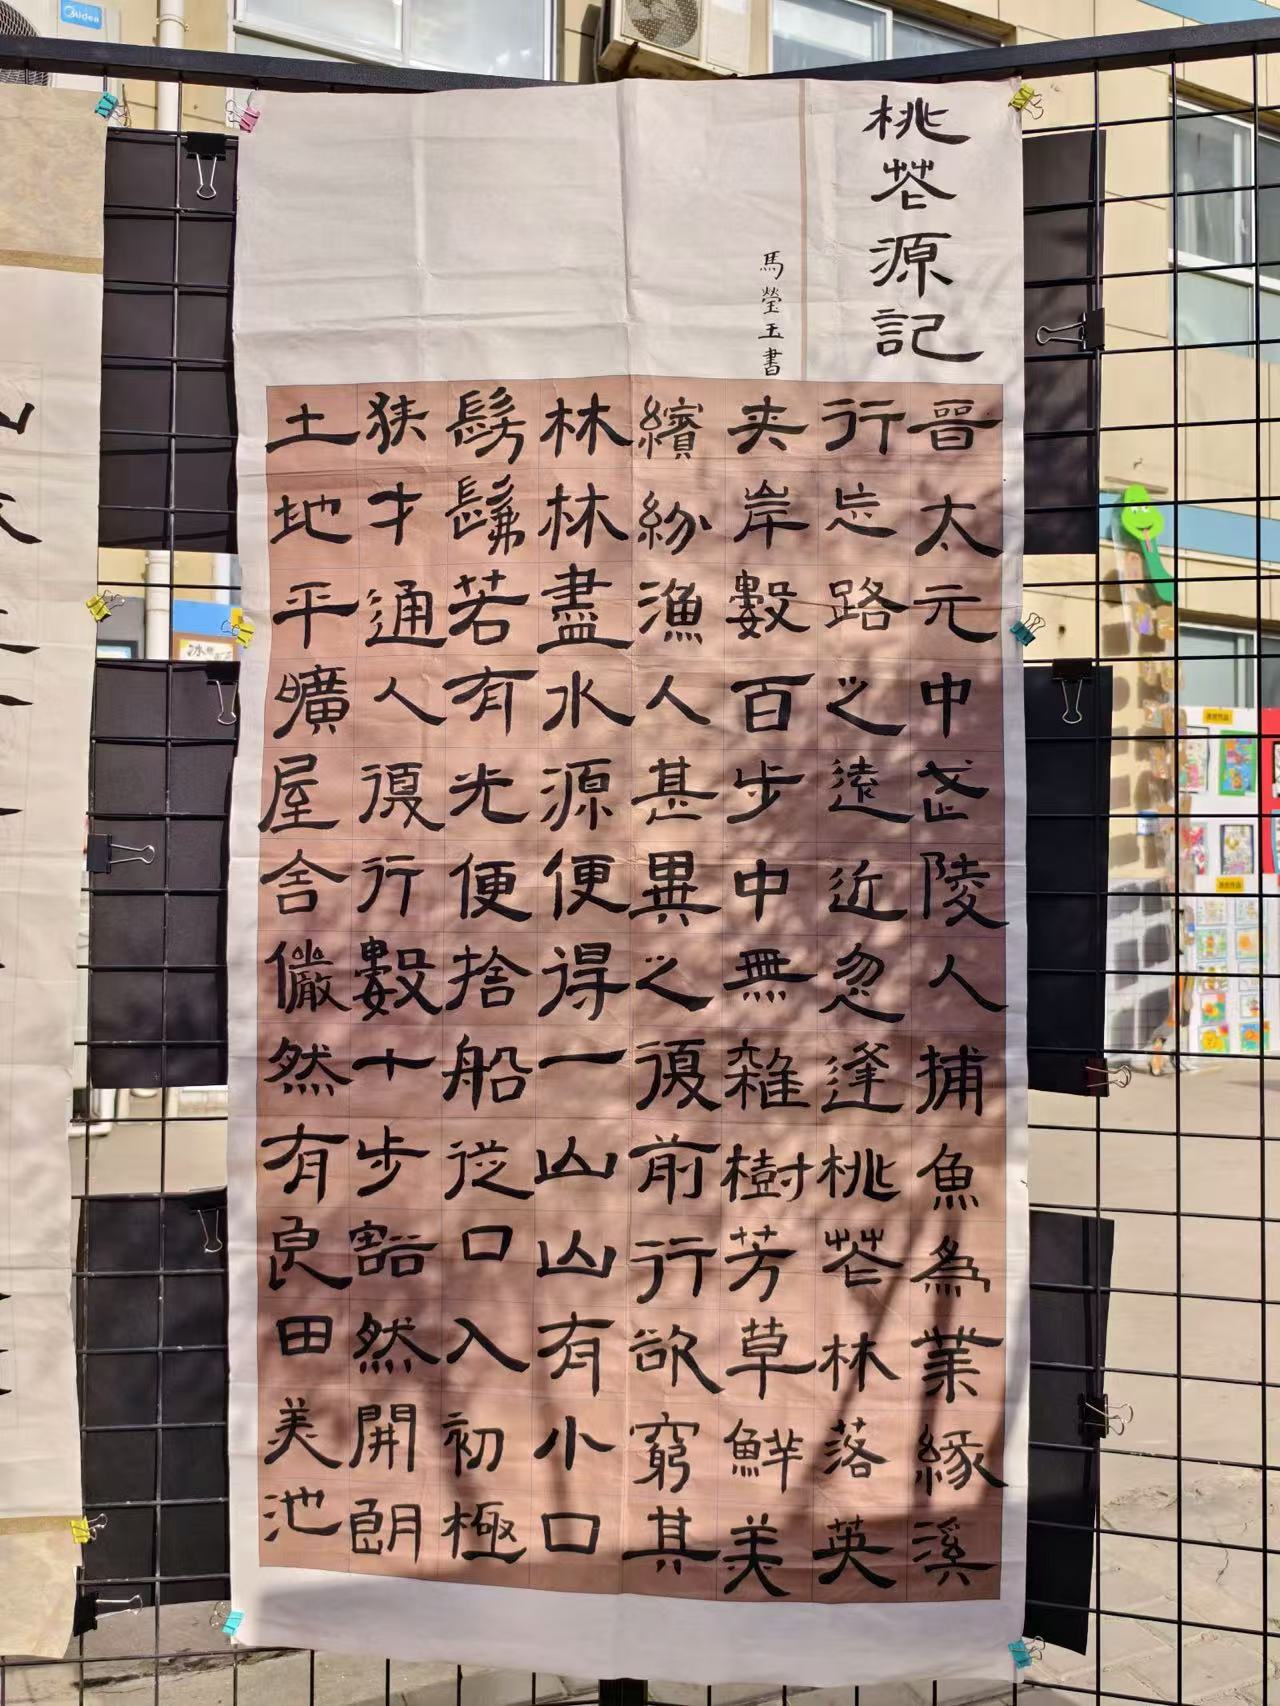 桃花源記
馬瑩玉書
晉太元中武陵人捕魚為業緣溪
行忘路之遠近忽逢桃花林落英
夹岸數百步中無雜樹芳草鮮美
繽紛漁人甚異之復前行欲窮其
林林盡水源便得一山山有小口
髣髴若有光便捨船從口入初極
狭才通人復行數十步豁然開朗
土地平曠屋舍儼然有良田美池
Midea